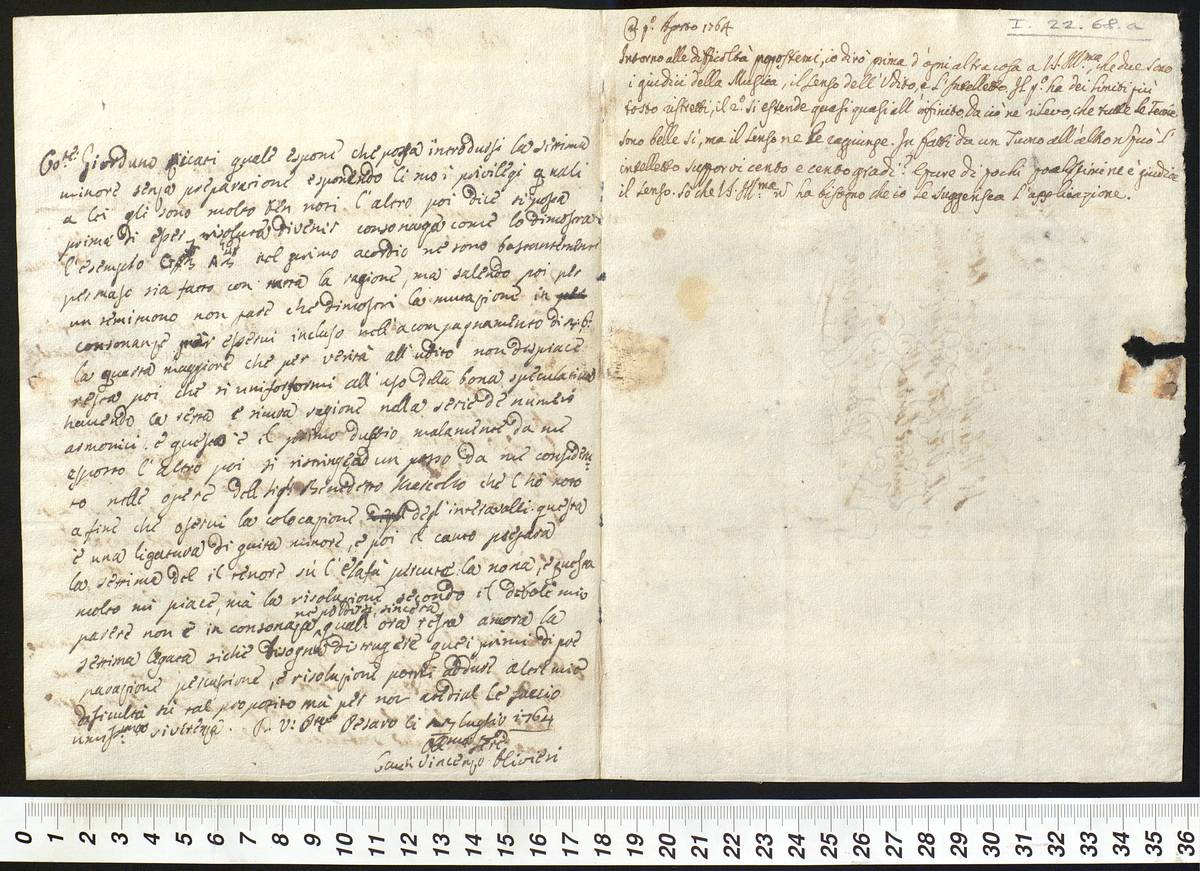 Co:te Giordano Ricati quale espone che possa introdursi la settima
minore senza preparazione esponendo li moi privilegi quali
a lei gli sono molto ben noti l'altro poi dice si possa
prima di esser risoluta divenir consonanza come lo dimostra
l'esempio nel primo acordio ne sono bastantemente
permaso sia fatto con tutta la ragione, ma salendo poi per
un semitono non pare che dimostri la mutazione in
consonanza per esservi incluso nell'acompagnamento di
la quarta maggiore che per verità all'udito non dispiace
resta poi che si uniformi all'uso della bona speculativa
havendo la sesta e sua ragione nella serie de numeri
armonici. è questo è il primo dubbio malamente da me
esposto l'altro poi si ristringe ad un passo da me considera-
to nelle opere dell Sigr Benedetto Marcello che l'hò noto
a fine che osservi la colocazione degl'intervalli: questa
è una ligatura di quinta minore, e poi il canto prepara
la settima del il tenore sù l'Elafà percute la nona, e questa
molto mi piace, mà la risoluzione secondo il debole mio
parere non è in consonanza ne potersi sincera qual' ora resta ancora la
settima legata sichè bisogna distrugere quei primi di pre
parazione percussione, e risoluzione potrei addure altre mie
dificultà sù tal proposito mà per non atediar le faccio
umiliss.mo riverenza. Di V: P. Pesaro li luglio 1764
Vincenzo Olivieri
I. 22. 68. a
R p.o Agosto 1764
Intorno alle difficoltà propostemi, io dirò prima d'ogni altra cosa a V.S. Ill.ma, che due sono
i giudici della Musica, il senso dell'Udito, e l'Intelletto. Il p.o ha dei limiti più
tosto ristretti, il 2.o si estende quasi quasi all'infinito, da ciò ne rilevo, che tutte le Teorie
sono belle sì, ma il senso ne le raggiunge. In fatti da un Tuono all'altro non può l'
intelletto supporvi cento e cento gradi? Eppure di pochi pochissimi ne è giudice
il senso. So che V.S. Ill.ma n ha bisogno che io le suggerisca l'applicazione.